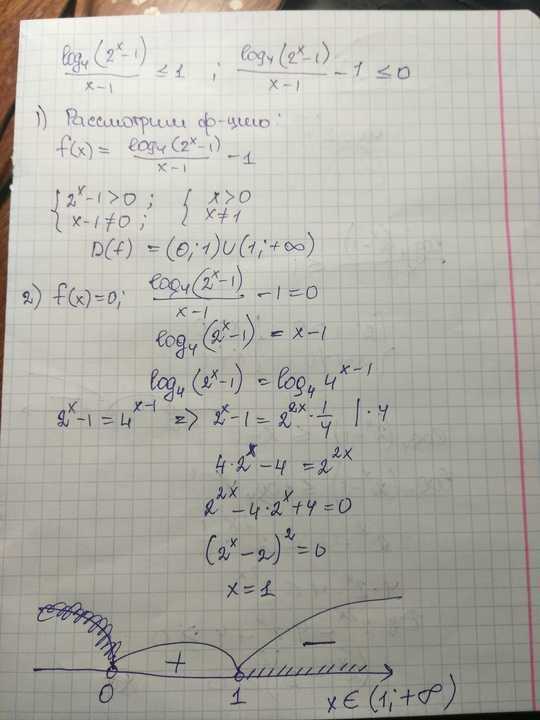 log₄(2ˣ-1)/(x-1) ≤ 1 ; log₄(2ˣ-1)/(x-1) - 1 ≤ 0
1) Рассмотрим ф-цию:
f(x) = log₄(2ˣ-1)/(x-1) - 1
{ 2ˣ-1>0 ; { x>0
{ x-1≠0 ; { x≠1
D(f) = (0;1)∪(1;+∞)
2) f(x)=0; log₄(2ˣ-1)/(x-1) - 1 = 0
log₄(2ˣ-1) = x-1
log₄(2ˣ-1) = log₄ 4ˣ⁻¹
2ˣ-1 = 4ˣ⁻¹ => 2ˣ-1 = 2²ˣ · 1/4 | · 4
4·2ˣ - 4 = 2²ˣ
2²ˣ - 4·2ˣ + 4 = 0
(2ˣ - 2)² = 0
x = 1
+ −
0 1 x∈(1;+∞)